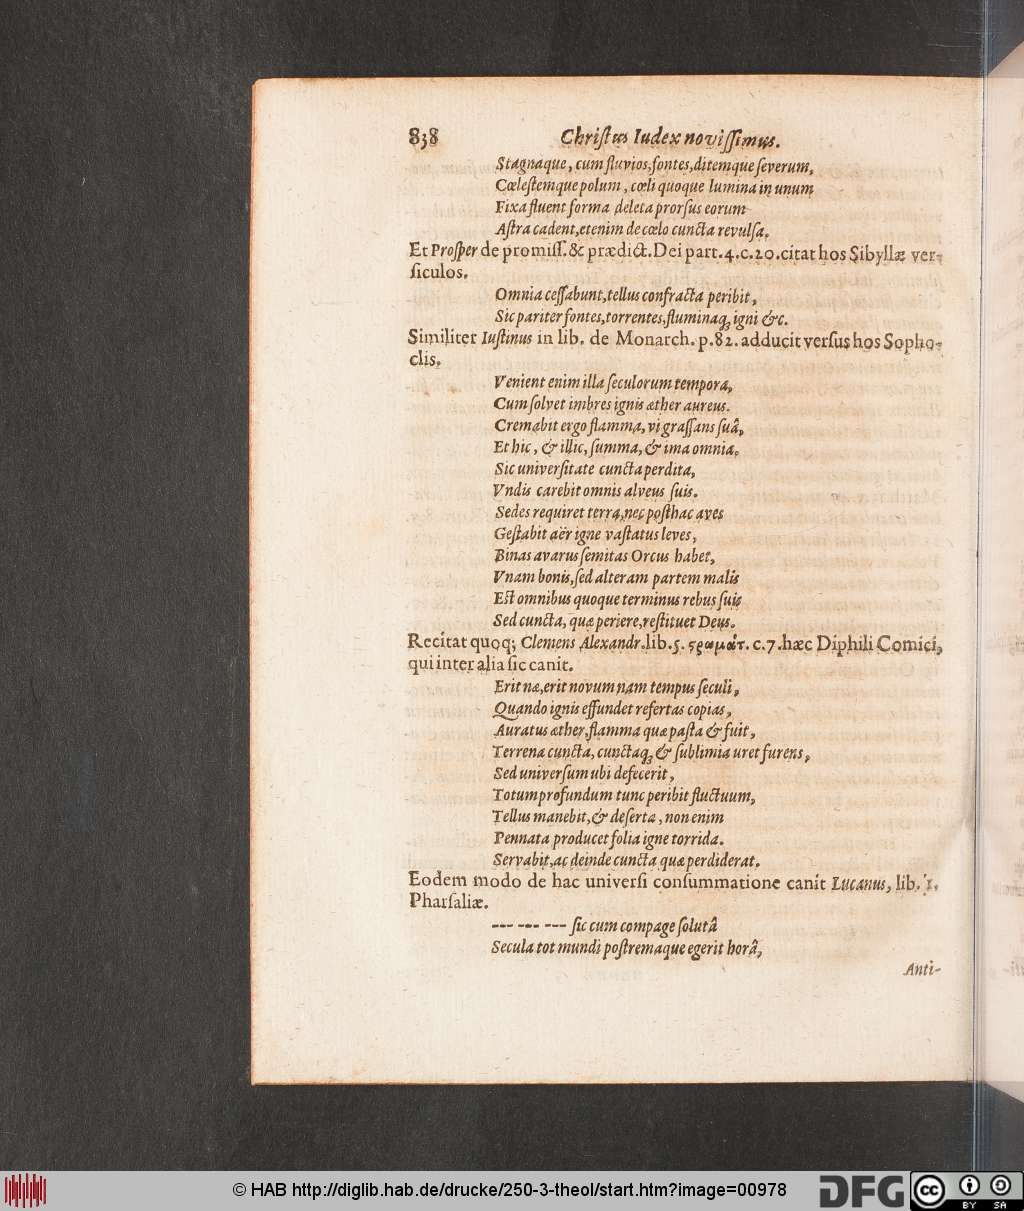 838 Christus Iudex novissimus.
Stagnaque, cum fluvios, fontes, ditemque severum,
Cœlestemque polum, cœli quoque lumina in unum
Fixa fluent forma deleta prorsus eorum
Astra cadent, etenim de cœlo cuncta revulsa.
Et Prosper de promiss. & prædict. Dei part. 4. c. 20. citat hos Sibyllæ ver-
siculos.
Omnia cessabunt, tellus confracta peribit,
Sic pariter fontes, torrentes, fluminaq; igni &c.
Similiter Iustinus in lib. de Monarch. p. 82. adducit versus hos Sopho-
clis.
Venient enim illa seculorum tempora,
Cum solvet imbres ignis æther aureus.
Cremabit ergo flamma, vi grassans suâ,
Et hic, & illic, summa, & ima omnia.
Sic universitate cuncta perdita,
Vndis carebit omnis alveus suis.
Sedes requiret terra, nec posthac aves
Gestabit aër igne vastatus leves,
Binas avarus semitas Orcus habet,
Vnam bonis, sed alteram partem malis
Est omnibus quoque terminus rebus suis
Sed cuncta, quæ periere, restituet Deus.
Recitat quoq; Clemens Alexandr. lib. 5. ςρωματ. c. 7. hæc Diphili Comici,
qui inter alia sic canit.
Erit næ, erit novum nam tempus seculi,
Quando ignis effundet refertas copias,
Auratus æther, flamma quæ pasta & fuit,
Terrena cuncta, cunctaq; & sublimia uret furens,
Sed universum ubi defecerit,
Totum profundum tunc peribit fluctuum,
Tellus manebit, & deserta, non enim
Pennata producet folia igne torrida.
Servabit, ac deinde cuncta quæ perdiderat.
Eodem modo de hac universi consummatione canit Lucanus, lib. 1.
Pharsaliæ.
--- --- --- sic cum compage solutâ
Secula tot mundi postremaque egerit horâ,
Anti-
© HAB http://diglib.hab.de/drucke/250-3-theol/start.htm?image=00978
DFG
cc
BY SA